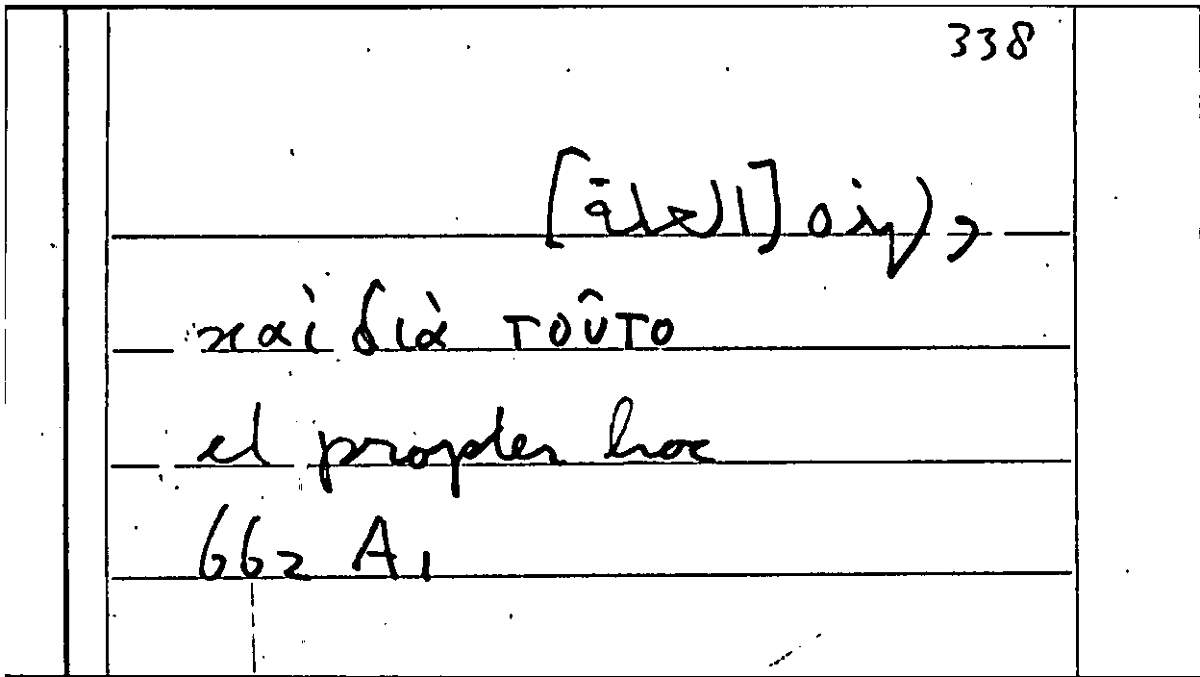 338
ولهذه [العلة]
καὶ διὰ τοῦτο
et propter hoc
662 A1